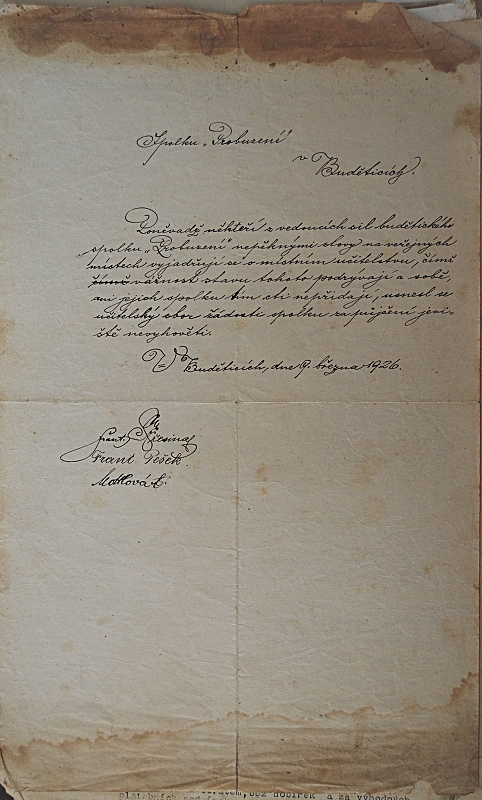 Spolku „Probuzení"
v Buděticích.
Poněvadž někteří z vedoucích sil budětického
spolku „Probuzení" nepěknými slovy na veřejných
místech vyjadřují se o místním učitelstvu, čímž
čímž vážnost stavu tohoto podrývají a sobě,
ani jejich spolku tím cti nepřidají, usnesl se
učitelský sbor žádosti spolku za půjčení jevi-
ště nevyhověti.
V Buděticích, dne 9. března 1926.
Frant.
Frant. Pešek.
bez dobírek a za výhodných